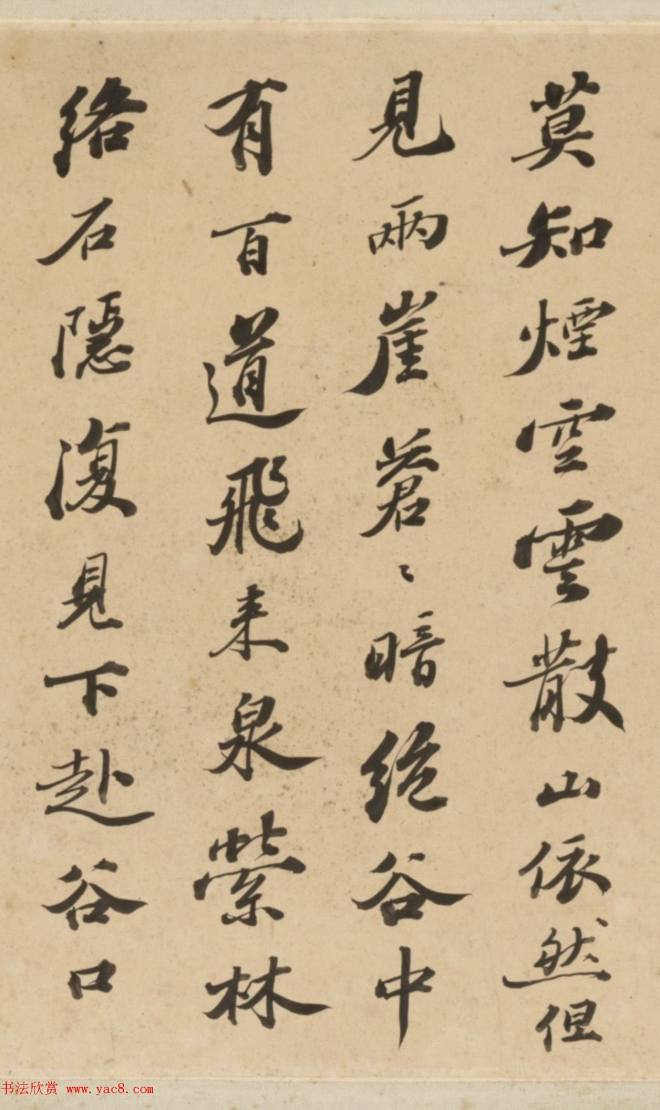 莫知煙空雲散山依然但
見兩崖蒼〻暗絕谷中
有百道飛来泉縈林
絡石隱復見下赴谷口
书法欣赏 www.yac8.com